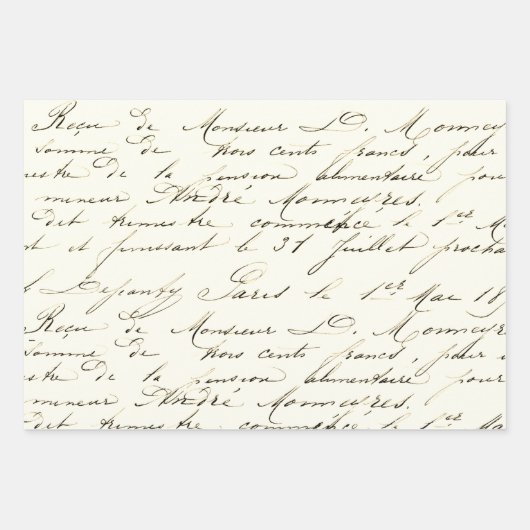 Reçu de Monsieur D. Monney
Somme de trois cents francs, pour
estre de la pension alimentaire pou
mineur André Monneyres.
dit trimestre commence le 1er Ma
nt et finissant le 31 Juillet procha
Paris le 1er Mai 18
Reçu de Monsieur D. Monneyre
Somme de trois cents francs, pour
estre de la pension alimentaire pour
mineur André Monneyres.
dit trimestre commence le 1er Ma